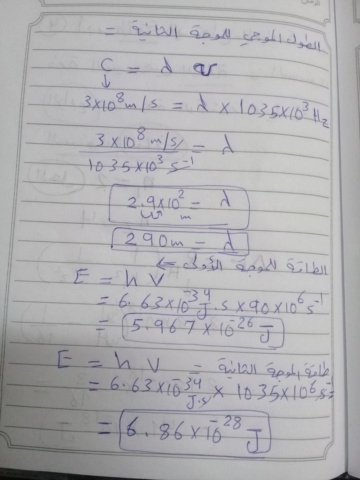 الطول الموجي للموجة الثانية =
C = λ v
3×10⁸ m/s = λ × 1035×10³ Hz
3×10⁸ m/s / 1035×10³ s⁻¹ = λ
2.9×10² m = λ
290 m = λ
الطاقة للموجة الأولى ←
E = h V
= 6.63×10⁻³⁴ J.s × 90×10⁶ s⁻¹
= 5.967×10⁻²⁶ J
E = h V = طاقة الموجة الثانية
= 6.63×10⁻³⁴ J.s × 1035×10⁶ s⁻
= 6.86×10⁻²⁸ J